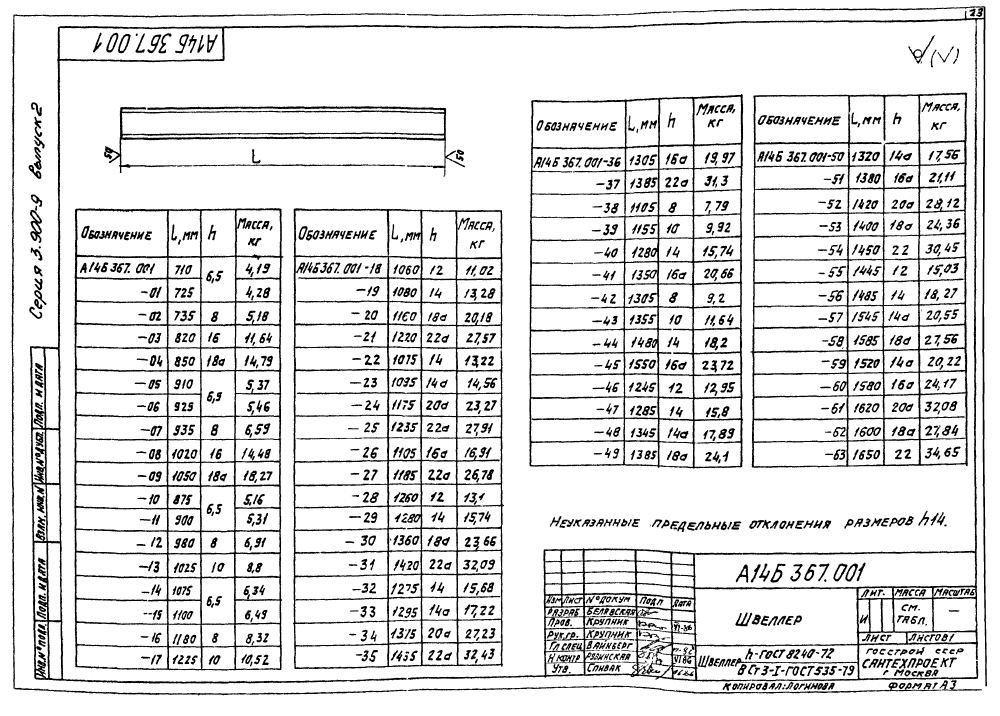 23
А14Б 367.001
√(√)
Серия 3.900-9 Выпуск 2
50
L
50
Обозначение L, мм h Масса, кг
А14Б 367.001 710 6,5 4,19
-01 725 4,28
-02 735 8 5,18
-03 820 16 11,64
-04 850 18а 14,79
-05 910 6,5 5,37
-06 925 5,46
-07 935 8 6,59
-08 1020 16 14,48
-09 1050 18а 18,27
-10 875 6,5 5,16
-11 900 5,31
-12 980 8 6,91
-13 1025 10 8,8
-14 1075 6,5 6,34
-15 1100 6,49
-16 1180 8 8,32
-17 1225 10 10,52
Обозначение L, мм h Масса, кг
А14Б 367.001-18 1060 12 11,02
-19 1080 14 13,28
-20 1160 18а 20,18
-21 1220 22а 27,57
-22 1075 14 13,22
-23 1095 14а 14,56
-24 1175 20а 23,27
-25 1235 22а 27,91
-26 1105 16а 16,91
-27 1185 22а 26,78
-28 1260 12 13,1
-29 1280 14 15,74
-30 1360 18а 23,66
-31 1420 22а 32,09
-32 1275 14 15,68
-33 1295 14а 17,22
-34 1375 20а 27,23
-35 1435 22а 32,43
Обозначение L, мм h Масса, кг
А14Б 367.001-36 1305 16а 19,97
-37 1385 22а 31,3
-38 1105 8 7,79
-39 1155 10 9,92
-40 1280 14 15,74
-41 1350 16а 20,66
-42 1305 8 9,2
-43 1355 10 11,64
-44 1480 14 18,2
-45 1550 16а 23,72
-46 1245 12 12,95
-47 1285 14 15,8
-48 1345 14а 17,89
-49 1385 18а 24,1
Обозначение L, мм h Масса, кг
А14Б 367.001-50 1320 14а 17,56
-51 1380 16а 21,11
-52 1420 20а 28,12
-53 1400 18а 24,36
-54 1450 22 30,45
-55 1445 12 15,03
-56 1485 14 18,27
-57 1545 14а 20,55
-58 1585 18а 27,56
-59 1520 14а 20,22
-60 1580 16а 24,17
-61 1620 20а 32,08
-62 1600 18а 27,84
-63 1650 22 34,65
Неуказанные предельные отклонения размеров h14.
Инв.№ подл. Подп. и дата Взам. инв.№ Инв.№ дубл. Подп. и дата
А14Б 367.001
Изм Лист № докум Подп Дата
Разраб Белявская
Пров. Крупник
Рук.гр. Крупник
Гл.спец Вайнберг
Н.контр Рузинская
Утв. Спивак
Швеллер
Лит. Масса Масштаб
И см. табл. —
Лист Листов 1
Швеллер h-ГОСТ 8240-72
В Ст 3-I-ГОСТ 535-79
Госстрой СССР
Сантехпроект
г Москва
Копировал: Логинова Формат А3